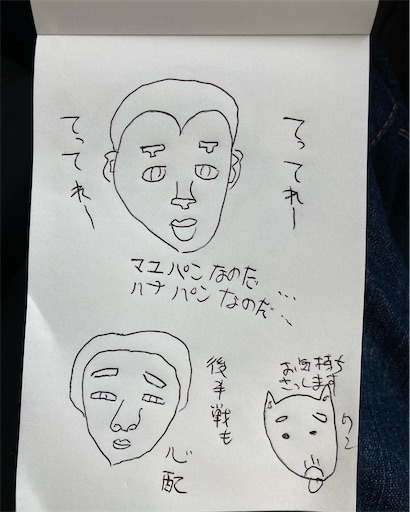 てってれー
てってれー
マユパンなのだ...
ハナパンなのだ...
後半戦も
心配
お気持ち
さっします